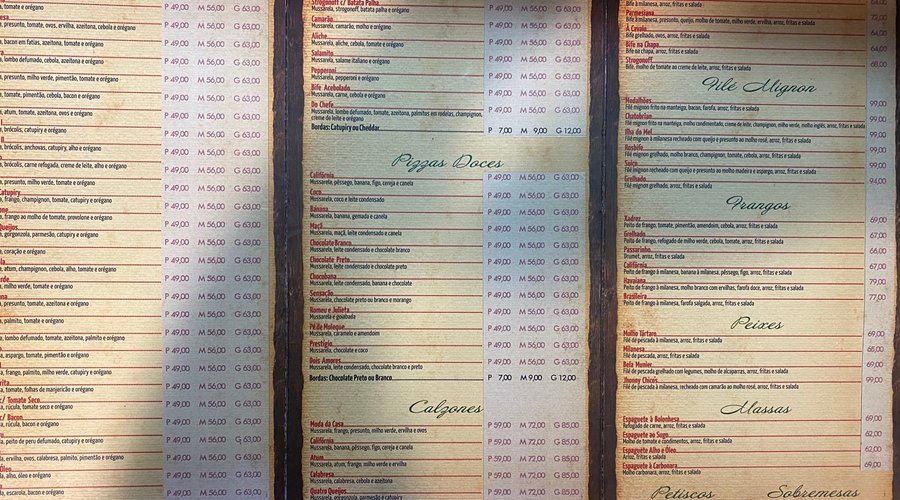 P 49,00 M 56,00 G 63,00
, presunto, tomate, ovos, azeitona, cebola e orégano
P 49,00 M 56,00 G 63,00
, bacon em fatias, azeitona, tomate e orégano
P 49,00 M 56,00 G 63,00
, lombo defumado, cebola, azeitona e orégano
P 49,00 M 56,00 G 63,00
, presunto, milho verde, pimentão, tomate e orégano
P 49,00 M 56,00 G 63,00
, tomate, pimentão, cebola, bacon e orégano
P 49,00 M 56,00 G 63,00
, atum, tomate, azeitona, ovos e orégano
P 49,00 M 56,00 G 63,00
, brócolis, catupiry e orégano
P 49,00 M 56,00 G 63,00
, brócolis, anchovas, catupiry, alho e orégano
P 49,00 M 56,00 G 63,00
, brócolis, carne refogada, creme de leite, alho e orégano
P 49,00 M 56,00 G 63,00
, presunto, milho verde, tomate e orégano
P 49,00 M 56,00 G 63,00
Catupiry
, frango, champignon, tomate, catupiry e orégano
P 49,00 M 56,00 G 63,00
, frango ao molho de tomate, provolone e orégano
P 49,00 M 56,00 G 63,00
Queijos
, gorgonzola, parmesão, catupiry e orégano
P 49,00 M 56,00 G 63,00
, coração e orégano
P 49,00 M 56,00 G 63,00
, atum, champignon, cebola, alho, tomate e orégano
P 49,00 M 56,00 G 63,00
, milho verde, tomate e orégano
P 49,00 M 56,00 G 63,00
P 49,00 M 56,00 G 63,00
, palmito, tomate e orégano
P 49,00 M 56,00 G 63,00
, lombo defumado, tomate, azeitona, palmito e orégano
P 49,00 M 56,00 G 63,00
, aspargo, tomate, pimentão e orégano
P 49,00 M 56,00 G 63,00
, frango, palmito, milho verde, catupiry e orégano
P 49,00 M 56,00 G 63,00
, tomate, folhas de manjericão e orégano
P 49,00 M 56,00 G 63,00
c/ Tomate Seco
, rúcula, tomate seco e orégano
P 49,00 M 56,00 G 63,00
c/ Bacon
, rúcula, tomate, bacon e orégano
P 49,00 M 56,00 G 63,00
, peito de peru defumado, catupiry e orégano
P 49,00 M 56,00 G 63,00
, ervilha, ovos, calabresa, palmito, pimentão e orégano
P 49,00 M 56,00 G 63,00
Óleo
, alho, óleo e orégano
P 49,00 M 56,00 G 63,00
, escarola, bacon e orégano
Strogonoff c/ Batata Palha
Mussarela, strogonoff, batata palha e orégano
P 49,00 M 56,00 G 63,00
Camarão
Mussarela, camarão, molho e orégano
P 49,00 M 56,00 G 63,00
Aliche
Mussarela, aliche, cebola, tomate e orégano
P 49,00 M 56,00 G 63,00
Salamito
Mussarela, salame italiano e orégano
P 49,00 M 56,00 G 63,00
Pepperoni
Mussarela, pepperoni e orégano
P 49,00 M 56,00 G 63,00
Bife Acebolado
Mussarela, carne, cebola e orégano
P 49,00 M 56,00 G 63,00
Do Chefe
Mussarela, lombo defumado, tomate, azeitona, palmitos em rodelas, champignon,
creme de leite e orégano
P 49,00 M 56,00 G 63,00
Bordas: Catupiry ou Cheddar
P 7,00 M 9,00 G 12,00
Pizzas Doces
Califórnia
Mussarela, pêssego, banana, figo, cereja e canela
P 49,00 M 56,00 G 63,00
Coco
Mussarela, coco e leite condensado
P 49,00 M 56,00 G 63,00
Banana
Mussarela, banana, gemada e canela
P 49,00 M 56,00 G 63,00
Maçã
Mussarela, maçã, leite condensado e canela
P 49,00 M 56,00 G 63,00
Chocolate Branco
Mussarela, leite condensado e chocolate branco
P 49,00 M 56,00 G 63,00
Chocolate Preto
Mussarela, leite condensado e chocolate preto
P 49,00 M 56,00 G 63,00
Chocobana
Mussarela, leite condensado, banana e chocolate
P 49,00 M 56,00 G 63,00
Sensação
Mussarela, chocolate preto ou branco e morango
P 49,00 M 56,00 G 63,00
Romeu e Julieta
Mussarela e goiabada
P 49,00 M 56,00 G 63,00
Pé de Moleque
Mussarela, caramelo e amendoim
P 49,00 M 56,00 G 63,00
Prestígio
Mussarela, chocolate e coco
P 49,00 M 56,00 G 63,00
Dois Amores
Mussarela, leite condensado, chocolate branco e preto
P 49,00 M 56,00 G 63,00
Bordas: Chocolate Preto ou Branco
P 7,00 M 9,00 G 12,00
Calzones
Moda da Casa
Mussarela, frango, presunto, milho verde, ervilha e ovos
P 59,00 M 72,00 G 85,00
Califórnia
Mussarela, banana, pêssego, figo, cereja e canela
P 59,00 M 72,00 G 85,00
Atum
Mussarela, atum, frango, milho verde e ervilha
P 59,00 M 72,00 G 85,00
Calabresa
Mussarela, calabresa, cebola e azeitona
P 59,00 M 72,00 G 85,00
Quatro Queijos
Mussarela, gorgonzola, parmesão e catupiry
P 59,00 M 72,00 G 85,00
Bife à milanesa, arroz, fritas e salada
Parmesiana
Bife à milanesa, presunto, queijo, molho de tomate, milho verde, ervilha, arroz, fritas e salada
72,00
À Cavalo
Bife grelhado, ovos, arroz, fritas e salada
64,00
Bife na Chapa
Bife na chapa, arroz, fritas e salada
64,00
Strogonoff
Bife, molho de tomate ao creme de leite, arroz, fritas e salada
68,00
Filé Mignon
Medalhões
Filé mignon frito na manteiga, bacon, farofa, arroz, fritas e salada
99,00
Chatobrian
Filé mignon frito na manteiga, molho condimentado, creme de leite, champignon, milho verde, molho inglês, arroz, fritas e salada
99,00
Ilha do Mel
Filé mignon à milanesa recheado com queijo e presunto ao molho rosé, arroz, fritas e salada
99,00
Rosbife
Filé mignon grelhado, molho branco, champignon, tomate, cebola, arroz, fritas e salada
99,00
Suíço
Filé mignon recheado com queijo e presunto ao molho madeira e aspargo, arroz, fritas e salada
99,00
Grelhado
Filé mignon grelhado, arroz, fritas e salada
94,00
Frangos
Xadrez
Peito de frango, tomate, pimentão, amendoim, cebola, arroz, fritas e salada
69,00
Grelhado
Peito de frango, refogado de milho verde, cebola, tomate, arroz, fritas e salada
67,00
Passarinho
Drumet, arroz, fritas e salada
66,00
Califórnia
Peito de frango à milanesa, banana à milanesa, pêssego, figo, arroz, fritas e salada
67,00
Havaiana
Peito de frango à milanesa, molho branco com ervilhas, farofa doce, arroz, fritas e salada
79,00
Brasileira
Peito de frango à milanesa, farofa salgada, arroz, fritas e salada
77,00
Peixes
Molho Tártaro
Filé de pescada à milanesa, arroz, fritas e salada
69,00
Milanesa
Filé de pescada à milanesa, arroz, fritas e salada
65,00
Bela Munier
Filé de pescada grelhado com legumes, molho de alcaparras, arroz, fritas e salada
69,00
Jhonny Chicos
Filé de pescada à milanesa, recheado com camarão ao molho rosé, arroz, fritas e salada
99,00
Massas
Espaguete à Bolonhesa
Refogado de carne, arroz, fritas e salada
69,00
Espaguete ao Sugo
Molho de tomate e condimentos, arroz, fritas e salada
62,00
Espaguete Alho e Óleo
Arroz, fritas e salada
62,00
Espaguete à Carbonara
Molho carbonara, arroz, fritas e salada
69,00
Petiscos
Sobremesas